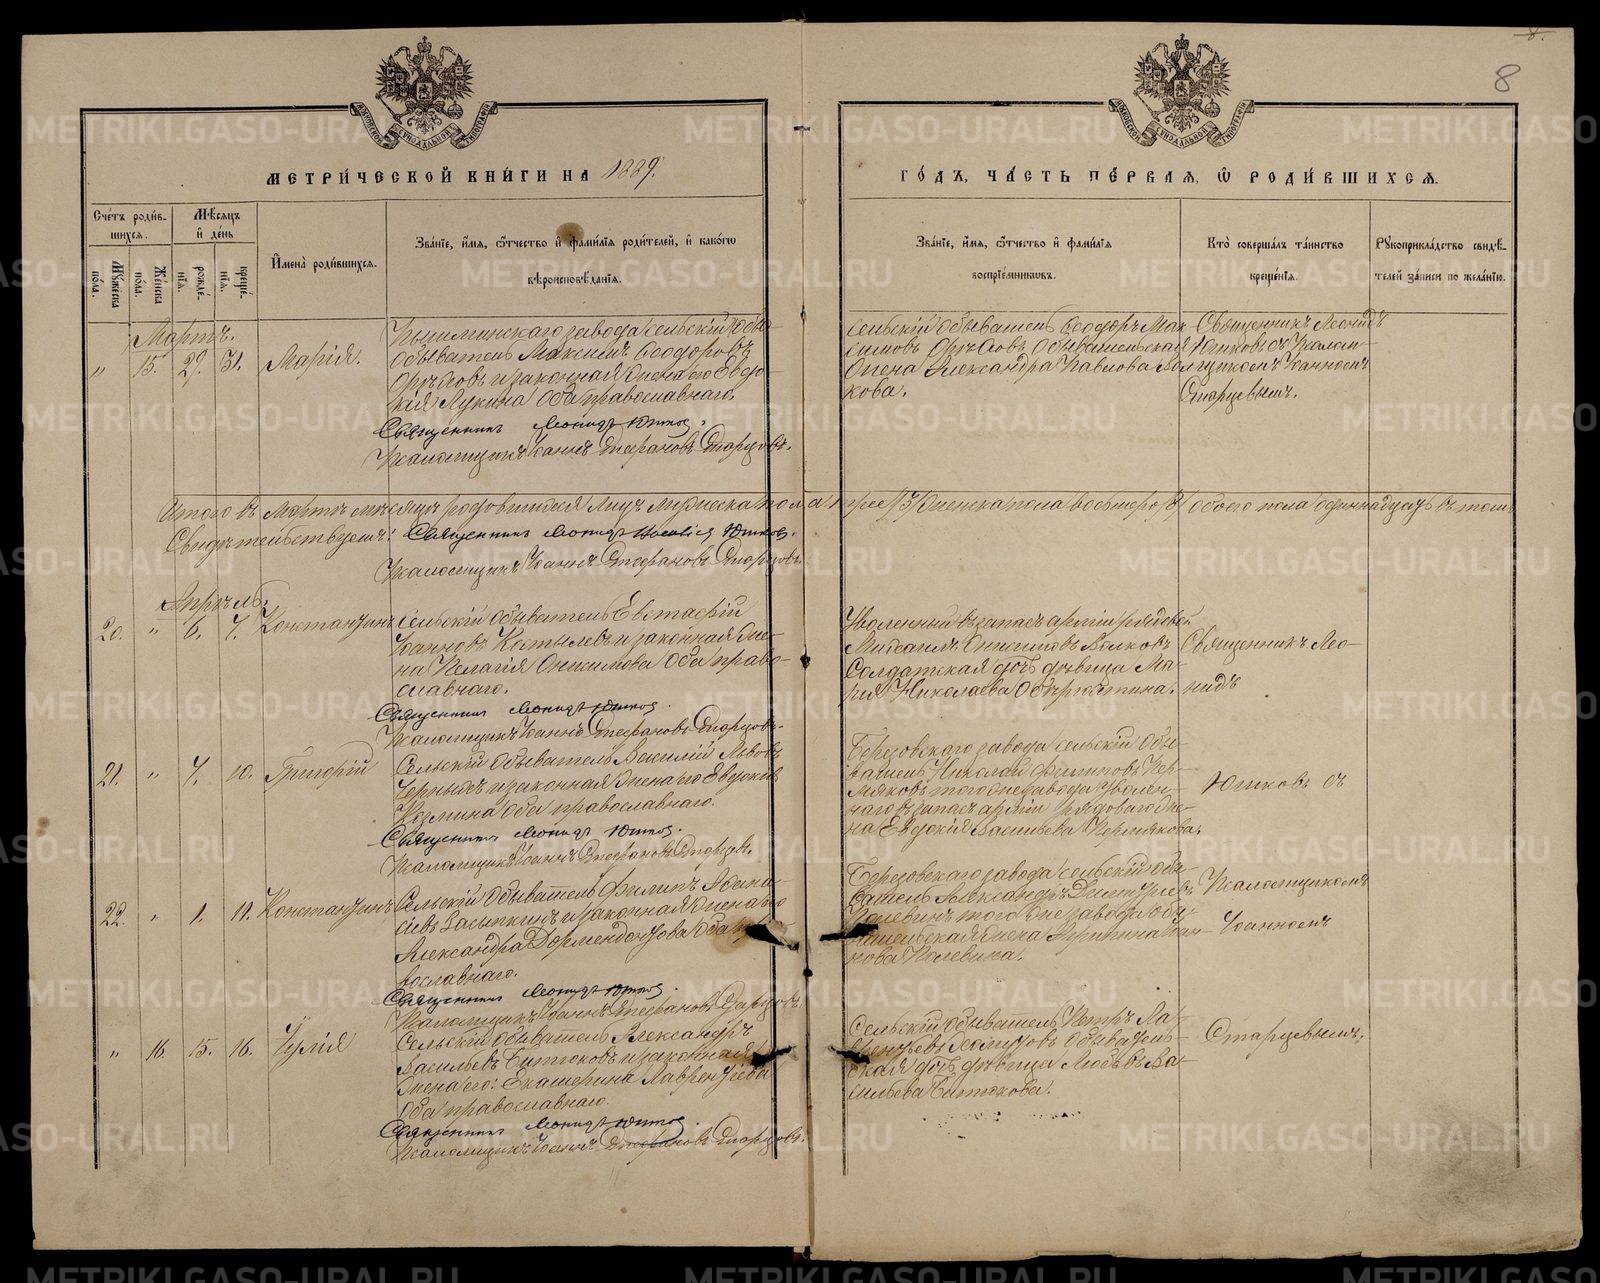 8.
8
МЕТРИ́ЧЕСКОЙ КНИ́ГИ НА 1889.
ГО́ДЪ, ЧА́СТЬ ПЕ́РВАЯ, Ѽ РОДИ́ВШИХСЯ.
Сче́тъ роди́вшихся.
Мѣ́сяцъ и де́нь
Мꙋ́жеска по́ла.
Же́нска по́ла.
рожде́нїя.
креще́нїя.
Имена̀ роди́вшихся.
Зва́нїе, и́мя, о́тчество и фами́лїя роди́телей, и како́гѡ
вѣроисповѣ́данїя.
Зва́нїе, и́мя, о́тчество и фами́лїя
воспрїе́мниковъ.
Кто̀ соверша́лъ та́инство
креще́нїя.
Рꙋкоприкла́дство свидѣ́телей за́писи по жела́нїю.
Мартъ.
" 15. 29. 31. Марія.
Пышминскаго завода сельскій обы-
обыватель Максимъ Ѳеодоровъ
и законная жена его Евдо-
кія Лукина оба православнаго.
Священникъ Леонидъ Юшков.
Псаломщикъ Іоаннъ Стефановъ Старцовъ.
Сельскій обыватель Ѳеодоръ Мак-
симовъ обывательская
жена Александра Павлова
кова.
Священникъ Леонидъ
Юшковъ съ Псалом-
щикомъ Іоанномъ
Старцевымъ.
Итого въ Мартѣ мѣсяцѣ родившихся лицъ мужеска пола трое /3/ женска пола восьмеро /8/ обоего пола одиннадцать въ томъ
Свидѣтельствуемъ: Священникъ Леонидъ Юшков.
Псаломщикъ Іоаннъ Стефановъ Старцовъ.
Апрѣль.
20. " 6. 7. Константинъ
Сельскій обыватель Евстафій
Іоанновъ Костылевъ и законная же-
на Пелагія Онисимова оба право-
славнаго.
Священникъ Леонидъ Юшков.
Псаломщикъ Іоаннъ Стефановъ Старцовъ.
Уволенный въ запасъ арміи рядовой
Михаилъ Онисимовъ Волковъ
Солдатская дочь дѣвица Ма-
рія Николаева
Священникъ Лео-
нидъ
21. " 7. 10. Григорій
Сельскій обыватель Василій Львовъ
Черныхъ и законная жена его Евдокія
Козмина оба православнаго.
Священникъ Леонидъ Юшков.
Псаломщикъ Іоаннъ Стефановъ Старцовъ.
Березовскаго завода сельскій обы-
ватель Николай Филиповъ Пер-
мяковъ того же завода уволен-
наго въ запасъ арміи рядоваго же-
на Евдокія Васильева Пермякова.
Юшковъ съ
22. " 1. 11. Константинъ
Сельскій обыватель Филипъ Аѳана-
сіевъ Засыпкинъ и законная жена его
Александра Дормендонтова оба пра-
вославнаго.
Священникъ Леонидъ Юшков.
Псаломщикъ Іоаннъ Стефановъ Старцовъ.
Березовскаго завода сельскій обы-
ватель Александръ Дементіевъ
того же завода обы-
вательская жена Агрипина Іоан-
нова
Псаломщикомъ
Іоанномъ
" 16. 15. 16. Юлія
Сельскій обыватель Александръ
Васильевъ Битюковъ и законная
жена его: Екатерина Лаврентіева
оба православнаго.
Священникъ Леонидъ Юшков.
Псаломщикъ Іоаннъ Стефановъ Старцовъ.
Сельскій обыватель Петръ Ла-
врентьевъ обыватель-
ская дочь дѣвица Любовь Ва-
сильева Битюкова.
Старцевымъ.
METRIKI.GASO-URAL.RU